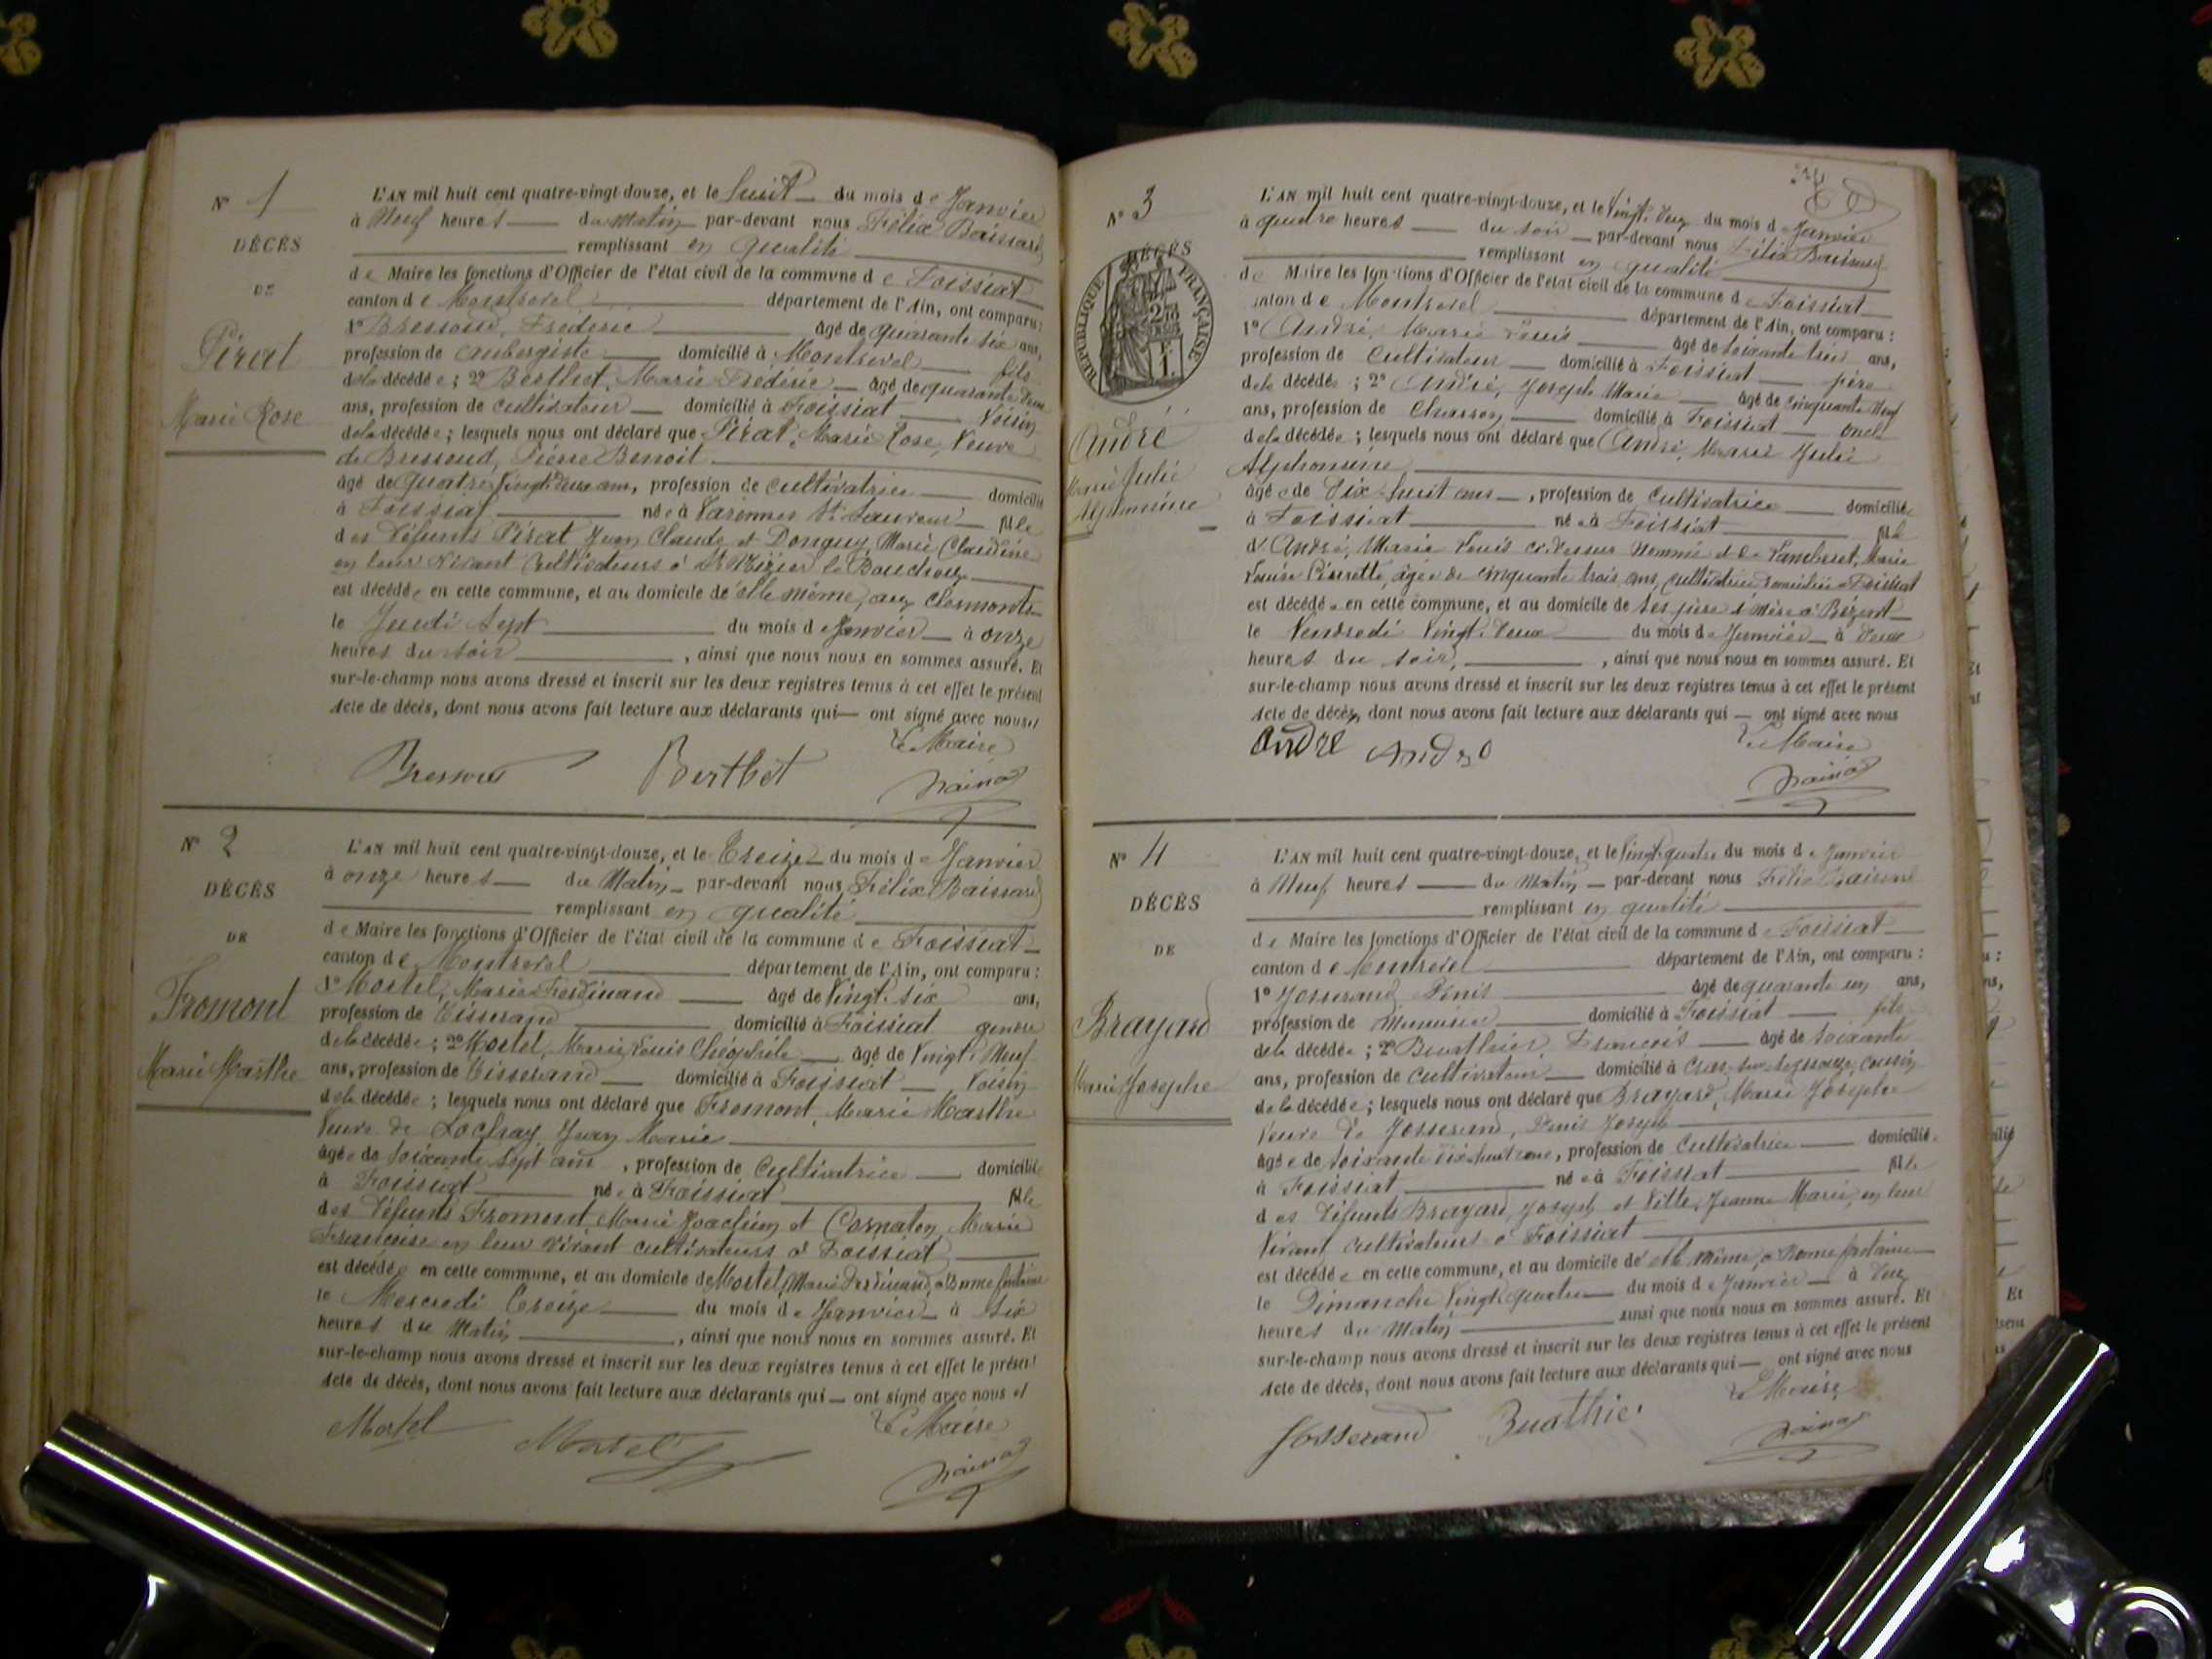 N° 1
DÉCÈS
DE
Pirat
Marie Rose
L'AN mil huit cent quatre-vingt-douze, et le huit du mois de Janvier
à Neuf heures du Matin par-devant nous Félix Baissard
remplissant en qualité
de Maire les fonctions d'Officier de l'état civil de la commune de Foissiat
canton de Montrevel département de l'Ain, ont comparu:
1° Bressoud, Frédéric âgé de quarante six ans,
profession de aubergiste domicilié à Montrevel fils
de la décédée; 2° Berthet, Marie Frédéric âgé de quarante deux
ans, profession de cultivateur domicilié à Foissiat Voisin
de la décédée; lesquels nous ont déclaré que Pirat, Marie Rose, Veuve
de Bressoud, Pierre Benoit
âgée de Quatre Vingt deux ans, profession de cultivatrice domicilié
à Foissiat née à Varennes St Sauveur fille
des défunts Pirat Jean Claude et Donguy, Marie Claudine
en leur vivant Cultivateurs à St Nizier le Bouchoux
est décédée en cette commune, et au domicile de elle même, aux Clermonts
le Jeudi Sept du mois de Janvier à onze
heures du soir, ainsi que nous nous en sommes assuré. Et
sur-le-champ nous avons dressé et inscrit sur les deux registres tenus à cet effet le présent
Acte de décès, dont nous avons fait lecture aux déclarants qui ont signé avec nous
Le Maire
Bressoud Berthet
N° 2
DÉCÈS
DE
Fromont
Marie Marthe
L'AN mil huit cent quatre-vingt-douze, et le Treize du mois de Janvier
à onze heures du Matin par-devant nous Félix Baissard
remplissant en qualité
de Maire les fonctions d'Officier de l'état civil de la commune de Foissiat
canton de Montrevel département de l'Ain, ont comparu:
1° Mortel, Marie Ferdinand âgé de Vingt six ans,
profession de Tisserand domicilié à Foissiat gendre
de la décédée; 2° Mortel, Marie Louis Théophile âgé de Vingt Neuf
ans, profession de Tisserand domicilié à Foissiat Voisin
de la décédée; lesquels nous ont déclaré que Fromont, Marie Marthe
Veuve de Rochay Jean Marie
âgée de Soixante Sept ans, profession de Cultivatrice domicilié
à Foissiat née à Foissiat fille
des défunts Fromont, Marie Joachim et Cornaton, Marie
Françoise en leur vivant cultivateurs à Foissiat
est décédée en cette commune, et au domicile de Mortel, Marie Ferdinand, à Bonnefontaine
le Mercredi Treize du mois de Janvier à six
heures du Matin, ainsi que nous nous en sommes assuré. Et
sur-le-champ nous avons dressé et inscrit sur les deux registres tenus à cet effet le présent
Acte de décès, dont nous avons fait lecture aux déclarants qui ont signé avec nous
Le Maire
Mortel Mortel
N° 3
DÉCÈS
RÉPUBLIQUE FRANÇAISE
André
Marie Julie
Alphonsine
L'AN mil huit cent quatre-vingt-douze, et le Vingt deux du mois de Janvier
à quatre heures du soir par-devant nous Félix Baissard
remplissant en qualité
de Maire les fonctions d'Officier de l'état civil de la commune de Foissiat
canton de Montrevel département de l'Ain, ont comparu:
1° André, Marie Louis âgé de soixante trois ans,
profession de Cultivateur domicilié à Foissiat père
de la décédée; 2° André, Joseph Marie âgé de cinquante Neuf
ans, profession de Charron domicilié à Foissiat oncle
de la décédée; lesquels nous ont déclaré que André, Marie Julie
Alphonsine
âgée de Dix huit ans, profession de Cultivatrice domicilié
à Foissiat née à Foissiat fille
d'André, Marie Louis ci-dessus Nommé et de Lamberet, Marie
Louise Pierrette, âgée de cinquante trois ans, cultivatrice domiciliée à Foissiat
est décédée en cette commune, et au domicile de ses père et mère à Bézent
le Vendredi Vingt deux du mois de Janvier à deux
heures du soir, ainsi que nous nous en sommes assuré. Et
sur-le-champ nous avons dressé et inscrit sur les deux registres tenus à cet effet le présent
Acte de décès, dont nous avons fait lecture aux déclarants qui ont signé avec nous
Le Maire
André André
N° 4
DÉCÈS
DE
Brayard
Marie Josephe
L'AN mil huit cent quatre-vingt-douze, et le Vingt quatre du mois de Janvier
à Neuf heures du Matin par-devant nous Félix Baissard
remplissant en qualité
de Maire les fonctions d'Officier de l'état civil de la commune de Foissiat
canton de Montrevel département de l'Ain, ont comparu:
1° Josserand Denis âgé de quarante un ans,
profession de Menuisier domicilié à Foissiat fils
de la décédée; 2° Buathier, François âgé de soixante
ans, profession de cultivateur domicilié à Cras-sur-Reyssouze, cousin
de la décédée; lesquels nous ont déclaré que Brayard, Marie Josephe
Veuve de Josserand, Denis Joseph
âgée de soixante dix huit ans, profession de Cultivatrice domicilié
à Foissiat née à Foissiat fille
des défunts Brayard, Joseph et Vitte, Jeanne Marie, en leur
Vivant cultivateurs à Foissiat
est décédée en cette commune, et au domicile de elle même, à Bonnefontaine
le Dimanche Vingt quatre du mois de Janvier à deux
heures du Matin ainsi que nous nous en sommes assuré. Et
sur-le-champ nous avons dressé et inscrit sur les deux registres tenus à cet effet le présent
Acte de décès, dont nous avons fait lecture aux déclarants qui ont signé avec nous
Le Maire
Josserand Buathier